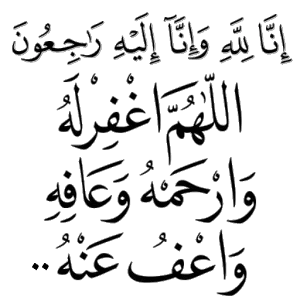 إِنَّا لِلَّهِ وَإِنَّآ إِلَيْهِ رَٰجِعُونَ
اللّٰهُمَّ اغْفِرْلَهُ
وَارْحَمْهُ وَعَافِهِ
وَاعْفُ عَنْهُ ..